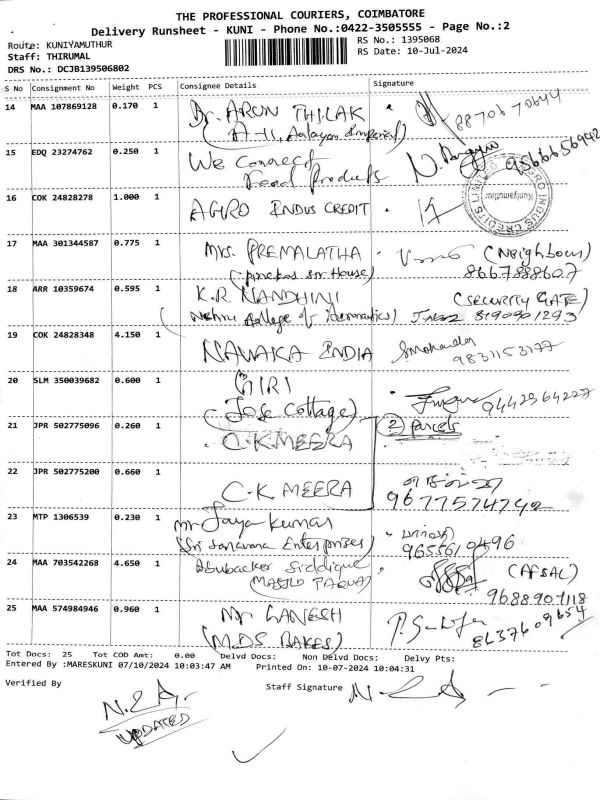 THE PROFESSIONAL COURIERS, COIMBATORE
Delivery Runsheet - KUNI - Phone No.:0422-3505555 - Page No.:2
Route: KUNIYAMUTHUR RS No.: 1395068
Staff: THIRUMAL RS Date: 10-Jul-2024
DRS No.: DCJB139506802
S No Consignment No Weight PCS Consignee Details Signature
14 MAA 107869128 0.170 1 Dr. ARUN THILAK
88706 70644
15 EDQ 23274762 0.250 1 We Connect 9566656942
Food Products
16 COK 24828278 1.000 1 AGRO INDUS CREDIT
Kuniyamuthur
17 MAA 301344587 0.775 1 Mrs. PREMALATHA (Neighbour)
House) 8667888607
18 ARR 10359674 0.595 1 K.R. NANDHINI (SECURITY GATE)
(Nehru College of Aeronautics) 8190901293
19 COK 24828348 4.150 1 NAVAKA INDIA
9831153177
20 SLM 350039682 0.600 1 GIRI
(Jose Cottage) 9442964227
21 JPR 502775096 0.260 1 C.K.MEERA (2) Parcels
22 JPR 502775200 0.660 1 C.K MEERA 9677574742
23 MTP 1306539 0.230 1 Mr Jaya Kumar
(Sri Saravana Enterprises) 9655610496
24 MAA 703542268 4.650 1 Abubacker Siddique (AFSAL)
9688907118
25 MAA 574984946 0.960 1 Mr GANESH
(MDS BAKES) 8637609654
Tot Docs: 25 Tot COD Amt: 0.00 Delvd Docs: Non Delvd Docs: Delvy Pts:
Entered By :MARESKUNI 07/10/2024 10:03:47 AM Printed On: 10-07-2024 10:04:31
Verified By Staff Signature
UPDATED